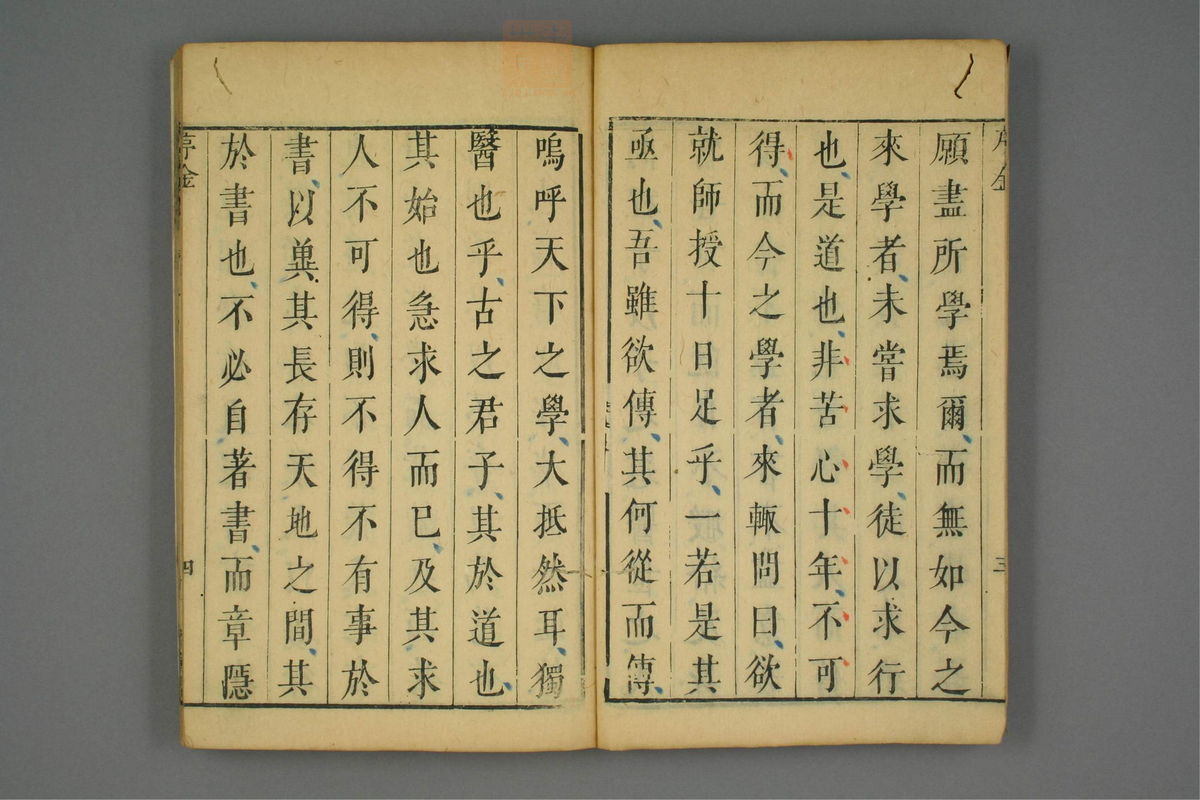 願盡所學焉爾而無如今之
來學者未嘗求學徒以求行
也是道也非苦心十年不可
得而今之學者來輙問曰欲
就師授十日足乎一若是其
亟也吾雖欲傳其何從而傳
嗚呼天下之學大抵然耳獨
醫也乎古之君子其於道也
其始也急求人而已及其求
人不可得則不得不有事於
書以兾其長存天地之間其
於書也不必自著書而章隱
三
四